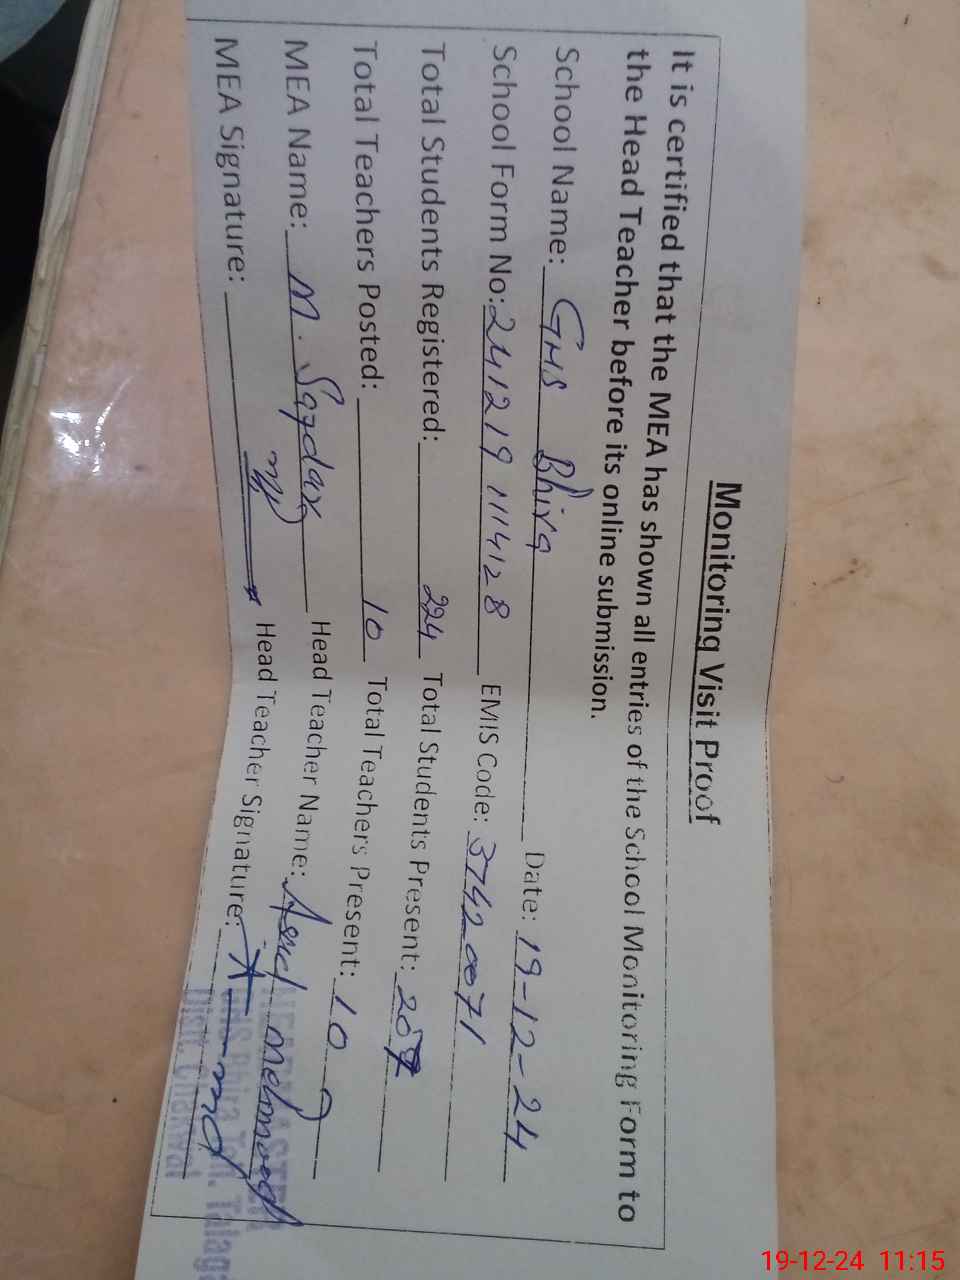 Monitoring Visit Proof
It is certified that the MEA has shown all entries of the School Monitoring Form to
the Head Teacher before its online submission.
School Name: GHS Bhira Date: 19-12-24
School Form No: 241219111428 EMIS Code: 37420071
Total Students Registered: 224 Total Students Present: 207
Total Teachers Posted: 10 Total Teachers Present: 10
MEA Name: M. Head Teacher Name: Asad Mehmood
MEA Signature: Head Teacher Signature:
HEADMASTER
GHS Bhira Teh. Talaga
Distt. Chakwal
19-12-24 11:15